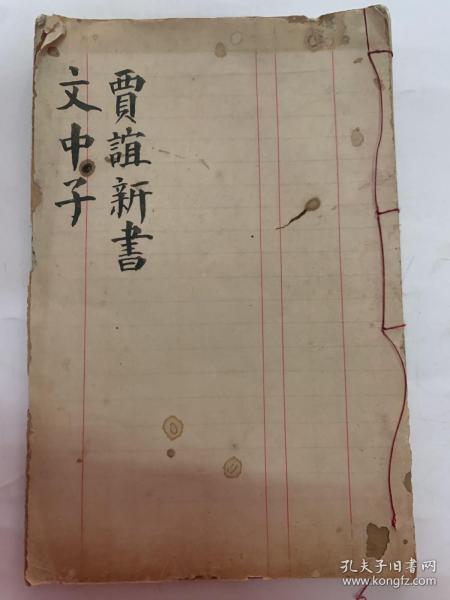 賈誼新書
文中子
孔夫子旧书网
www.kongfz.com